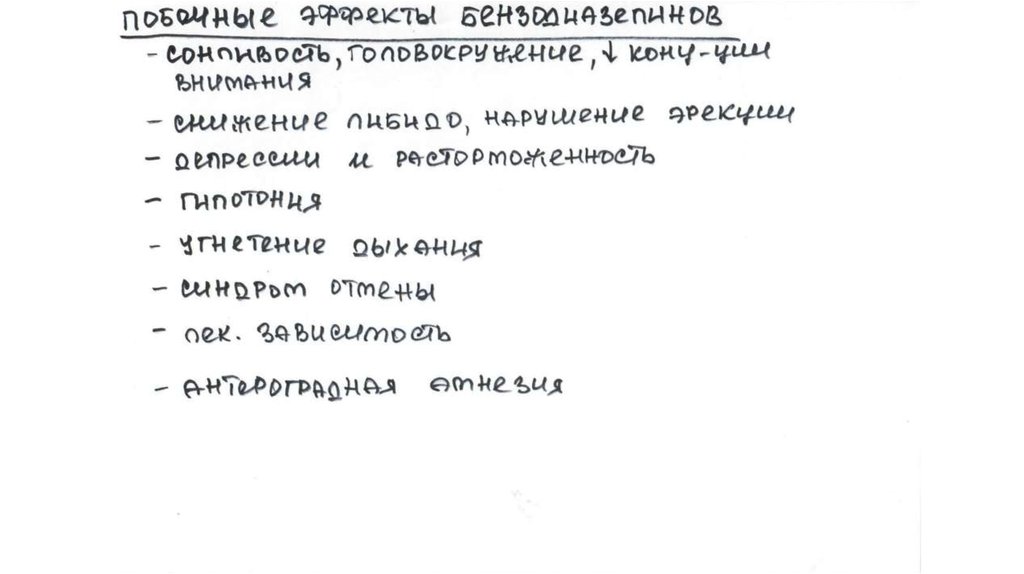 ПОБОЧНЫЕ ЭФФЕКТЫ БЕНЗОДИАЗЕПИНОВ
- СОНЛИВОСТЬ, ГОЛОВОКРУЖЕНИЕ, ↓ КОНЦ-ЦИИ
ВНИМАНИЯ
- СНИЖЕНИЕ ЛИБИДО, НАРУШЕНИЕ ЭРЕКЦИИ
- ДЕПРЕССИИ И РАСТОРМОЖЕННОСТЬ
- ГИПОТОНИЯ
- УГНЕТЕНИЕ ДЫХАНИЯ
- СИНДРОМ ОТМЕНЫ
- ЛЕК. ЗАВИСИМОСТЬ
- АНТЕРОГРАДНАЯ АМНЕЗИЯ